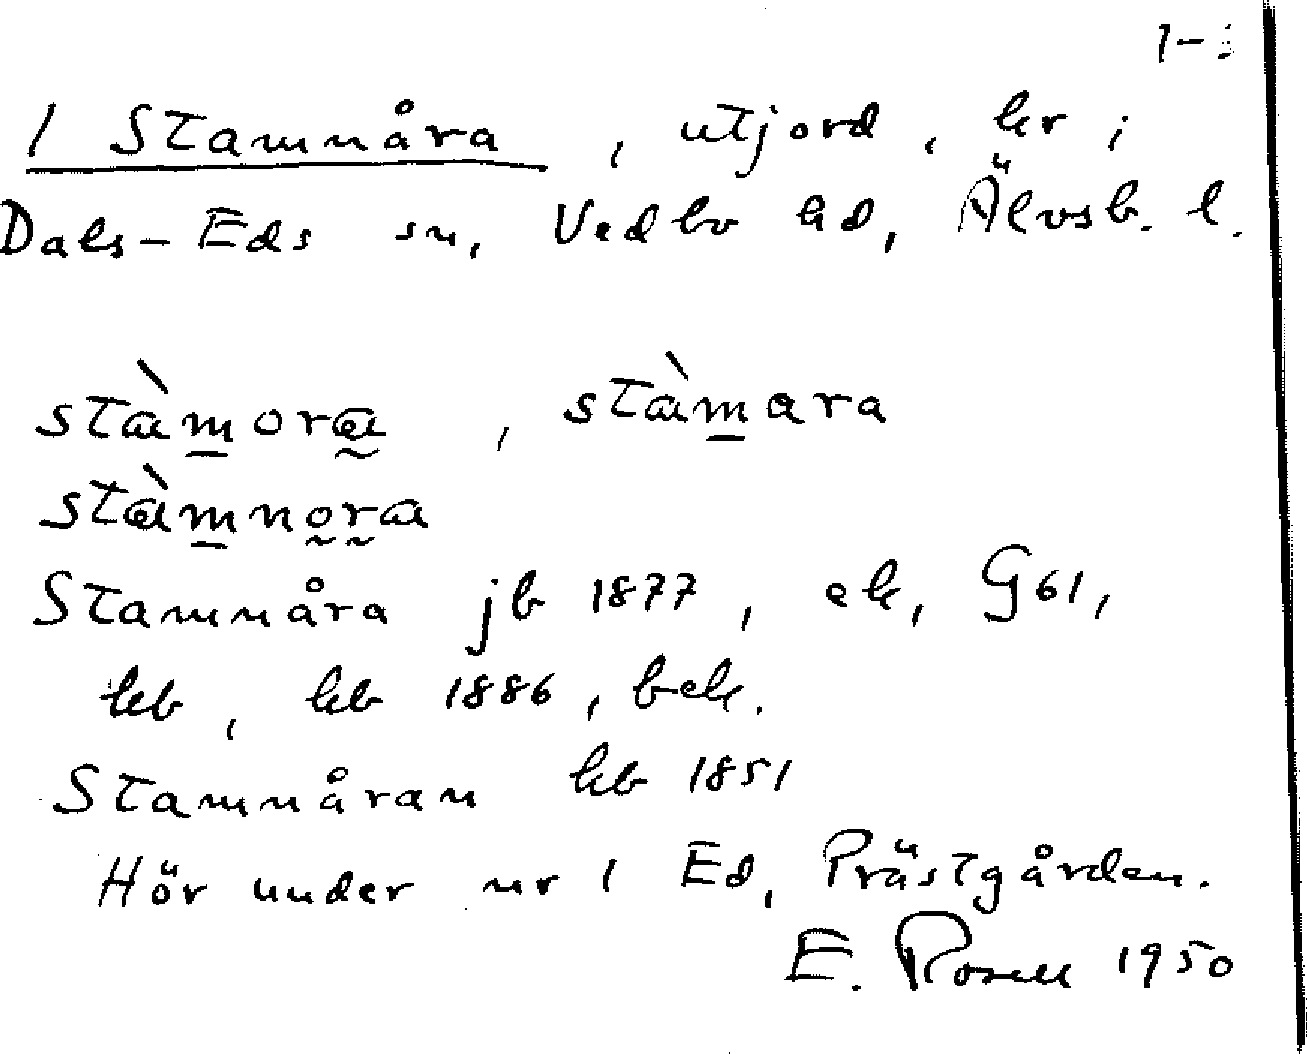 1-
1 Stamnåra, utjord, hr i
Dals-Eds sn, Vedbo hd, Älvsb. l.
stàmora, stàmara
stàmnora
Stamnåra jb 1877, ek, G61,
kb, hb 1886, bek.
Stamnåran hb 1851
Hör under nr 1 Ed, Prästgården.
E. Rosell 1950